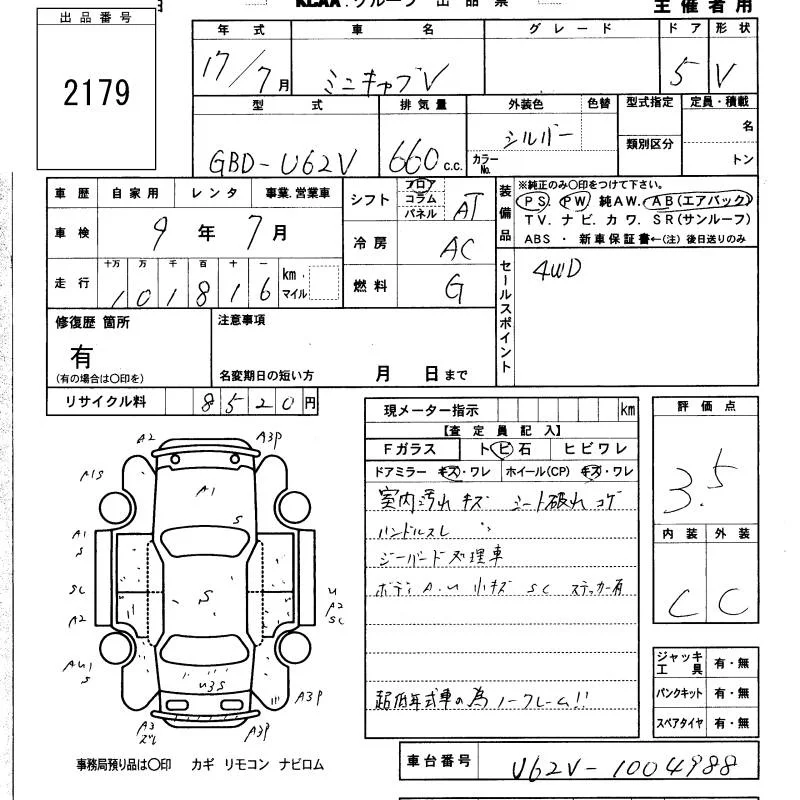 KCAA.グループ 出品票
主催者用
出品番号
2179
年式 車名 グレード ドア 形状
17/7月 ミニキャブV 5 V
型式 排気量 外装色 色替 型式指定 定員・積載
GBD-U62V 660 c.c. シルバー カラーNo. 類別区分 名 トン
車歴 自家用 レンタ 事業.営業車
車検 9年7月
走行 十万 万 千 百 十 一
101816 km・マイル
シフト フロア コラム パネル AT
冷房 AC
燃料 G
装備品 ※純正のみ○印をつけて下さい。
PS. PW 純AW. AB(エアバック)
TV. ナビ. カワ. SR(サンルーフ)
ABS ・ 新車保証書←(注) 後日送りのみ
セールスポイント 4WD
修復歴 箇所 注意事項
有
(有の場合は○印を) 名変期日の短い方 月 日まで
リサイクル料 8520円
現メーター指示 km
【査定員記入】
Fガラス トビ石 ヒビワレ
ドアミラー キズ・ワレ ホイール(CP) キズ・ワレ
室内汚れ キズ シート破れ コゲ
ハンドルスレ
ジーバード処理車
ボディ A.U 小キズ SC ステッカー有
超低年式車の為 ノークレーム!!
評価点
3.5
内装 外装
C C
ジャッキ工具 有・無
パンクキット 有・無
スペアタイヤ 有・無
A2 A3P
A1S A1
S
A1
S
SC S U
A2 A2
SC
AU1
S U3S A3P
A3
ズレ A3P
事務局預り品は○印 カギ リモコン ナビロム
車台番号 U62V-1004988